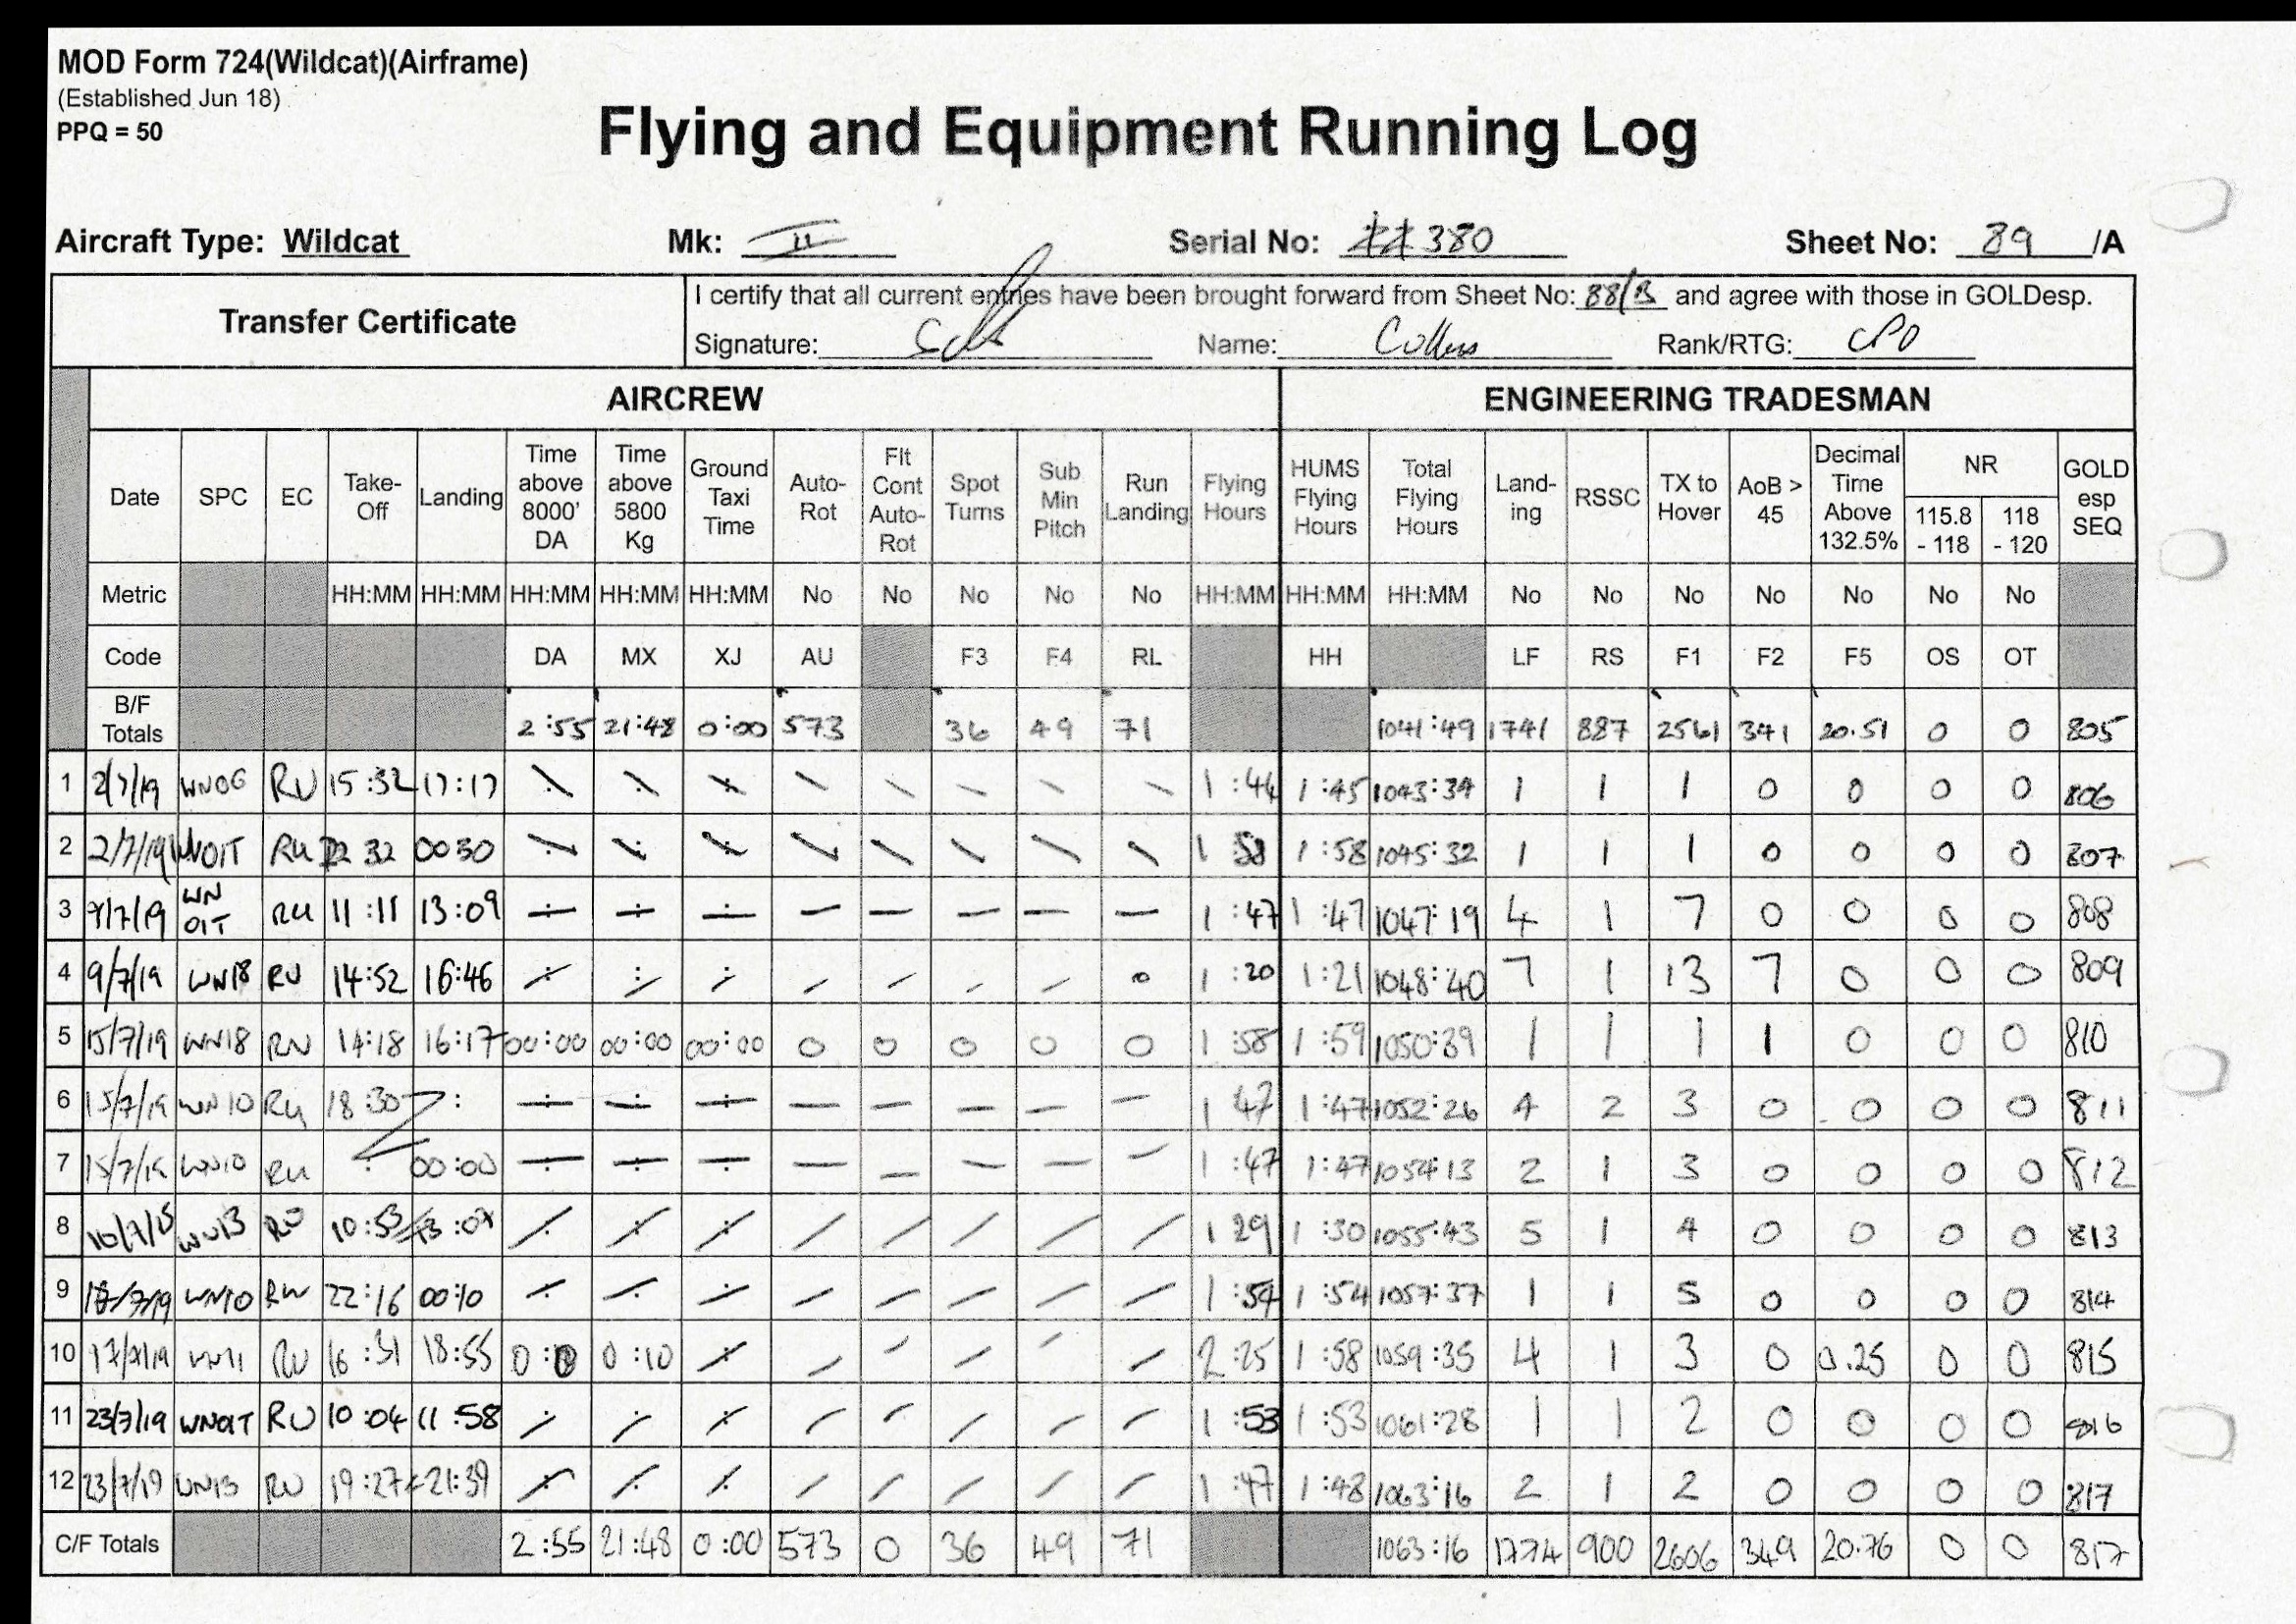 MOD Form 724(Wildcat)(Airframe)
(Established Jun 18)
PPQ = 50
Flying and Equipment Running Log
Aircraft Type: Wildcat Mk: II Serial No: 380 Sheet No: 89 /A
Transfer Certificate
I certify that all current entries have been brought forward from Sheet No: 88/B and agree with those in GOLDesp.
Signature: Name: Collens Rank/RTG: CPO
AIRCREW ENGINEERING TRADESMAN
Date SPC EC Take-Off Landing Time above 8000' DA Time above 5800 Kg Ground Taxi Time Auto-Rot Flt Cont Auto-Rot Spot Turns Sub Min Pitch Run Landing Flying Hours HUMS Flying Hours Total Flying Hours Land-ing RSSC TX to Hover AoB > 45 Decimal Time Above 132.5% NR 115.8 - 118 118 - 120 GOLD esp SEQ
Metric HH:MM HH:MM HH:MM HH:MM HH:MM No No No No No HH:MM HH:MM HH:MM No No No No No No No
Code DA MX XJ AU F3 F4 RL HH LF RS F1 F2 F5 OS OT
B/F Totals 2:55 21:48 0:00 573 36 49 71 1041:49 1741 887 2561 341 20.51 0 0 805
1 2/7/19 WN06 RU 15:32 17:17 1:44 1:45 1043:34 1 1 1 0 0 0 0 806
2 2/7/19 WN01T RU 22 32 0030 1:58 1:58 1045:32 1 1 1 0 0 0 0 807
3 9/7/19 WN 01T RU 11:11 13:09 1:47 1:47 1047:19 4 1 7 0 0 0 0 808
4 9/7/19 WN18 RU 14:52 16:46 0 1:20 1:21 1048:40 7 1 13 7 0 0 0 809
5 15/7/19 WN18 RU 14:18 16:17 00:00 00:00 00:00 0 0 0 0 0 1:58 1:59 1050:39 1 1 1 1 0 0 0 810
6 15/7/19 WN10 RU 18:30 : 1 47 1:47 1052:26 4 2 3 0 0 0 0 811
7 15/7/19 WN10 RU : 00:00 1:47 1:47 1054:13 2 1 3 0 0 0 0 812
8 WN13 RU 10:53 13:07 1 29 1:30 1055:43 5 1 4 0 0 0 0 813
9 WN10 RU 22:16 00:10 1:54 1:54 1057:37 1 1 5 0 0 0 0 814
10 17/7/19 WN11 RU 16:31 18:55 0:0 0:10 2:25 1:58 1059:35 4 1 3 0 0.25 0 0 815
11 23/7/19 WN01T RU 10:04 11:58 1:53 1:53 1061:28 1 1 2 0 0 0 0 816
12 23/7/19 WN13 RU 19:27 21:39 1:47 1:48 1063:16 2 1 2 0 0 0 0 817
C/F Totals 2:55 21:48 0:00 573 0 36 49 71 1063:16 1774 900 2606 349 20.76 0 0 817